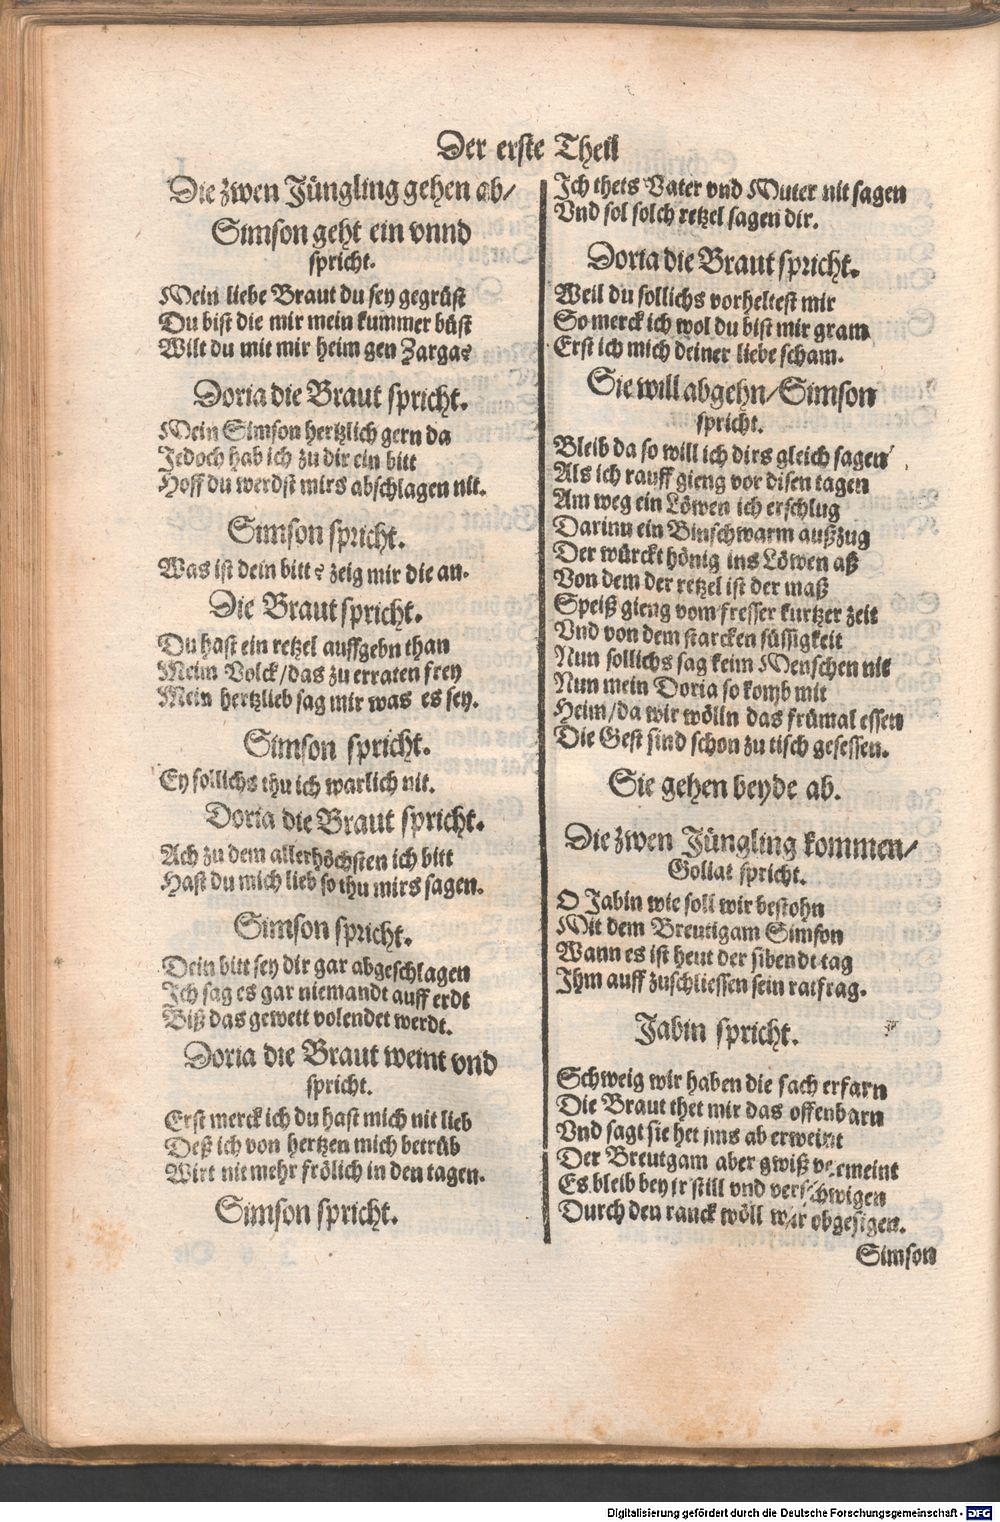 Der erste Theil
Die zwen Jüngling gehen ab/
Simson geht ein vnnd
spricht.
Mein liebe Braut du sey gegrüst
Du bist die mir mein kummer büst
Wilt du mit mir heim gen Zarga?
Doria die Braut spricht.
Mein Simson hertzlich gern da
Jedoch hab ich zu dir ein bitt
Hoff du werdst mirs abschlagen nit.
Simson spricht.
Was ist dein bitt? zeig mir die an.
Die Braut spricht.
Du hast ein retzel auffgebn than
Meim Volck/das zu erraten frey
Mein hertzlieb sag mir was es sey.
Simson spricht.
Ey sollichs thu ich warlich nit.
Doria die Braut spricht.
Ach zu dem allerhöchsten ich bitt
Hast du mich lieb so thu mirs sagen.
Simson spricht.
Dein bitt sey dir gar abgeschlagen
Ich sag es gar niemandt auff erdt
Biß das gewett volendet werdt.
Doria die Braut weint vnd
spricht.
Erst merck ich du hast mich nit lieb
Deß ich von hertzen mich betrüb
Wirt nit mehr frölich in den tagen.
Simson spricht.
Ich thets Vater vnd Muter nit sagen
Vnd sol solch retzel sagen dir.
Doria die Braut spricht.
Weil du sollichs vorheltest mir
So merck ich wol du bist mir gram
Erst ich mich deiner liebe scham.
Sie will abgehn/Simson
spricht.
Bleib da so will ich dirs gleich sagen
Als ich rauff gieng vor disen tagen
Am weg ein Löwen ich erschlug
Darinn ein Binschwarm außzug
Der würckt hönig ins Löwen aß
Von dem der retzel ist der maß
Speiß gieng vom fresser kurtzer zeit
Vnd von dem starcken süssigkeit
Nun sollichs sag keim Menschen nit
Nun mein Doria so komb mit
Heim/da wir wölln das frümal essen
Die Gest sind schon zu tisch gesessen.
Sie gehen beyde ab.
Die zwen Jüngling kommen/
Goliat spricht.
O Jabin wie soll wir bestohn
Mit dem Breutigam Simson
Wann es ist heut der sibendt tag
Ihm auff zuschliessen sein ratfrag.
Jabin spricht.
Schweig wir haben die sach erfarn
Die Braut thet mir das offenbarn
Vnd sagt sie het jms ab erweint
Der Breutgam aber gwiß vermeint
Es bleib bey jr still vnd verschwigen
Durch den ranck wöll wir obgesigen.
Simson
Digitalisierung gefördert durch die Deutsche Forschungsgemeinschaft - DFG